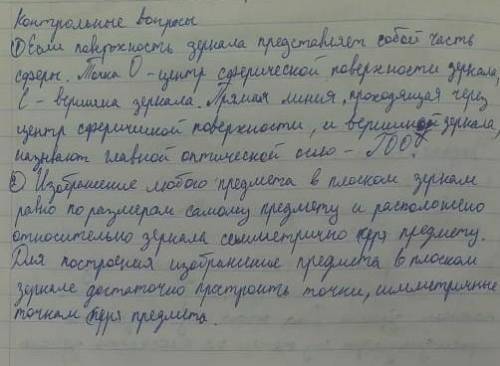 Контрольные вопросы
① Если поверхность зеркала представляет собой часть
сферы. Точка О - центр сферической поверхности зеркала,
С - вершина зеркала. Прямая линия, проходящая через
центр сферичиной поверхности, и вершиной зеркала,
называют главной оптической осью - ГОО.
② Изображение любого предмета в плоском зеркам
равно по размерам самому предмету и расположено
относительно зеркала семметрично предмету.
Для построения изображение предмета в плоском
зеркале достаточно простроить точки, симметричные
точкам предмета.